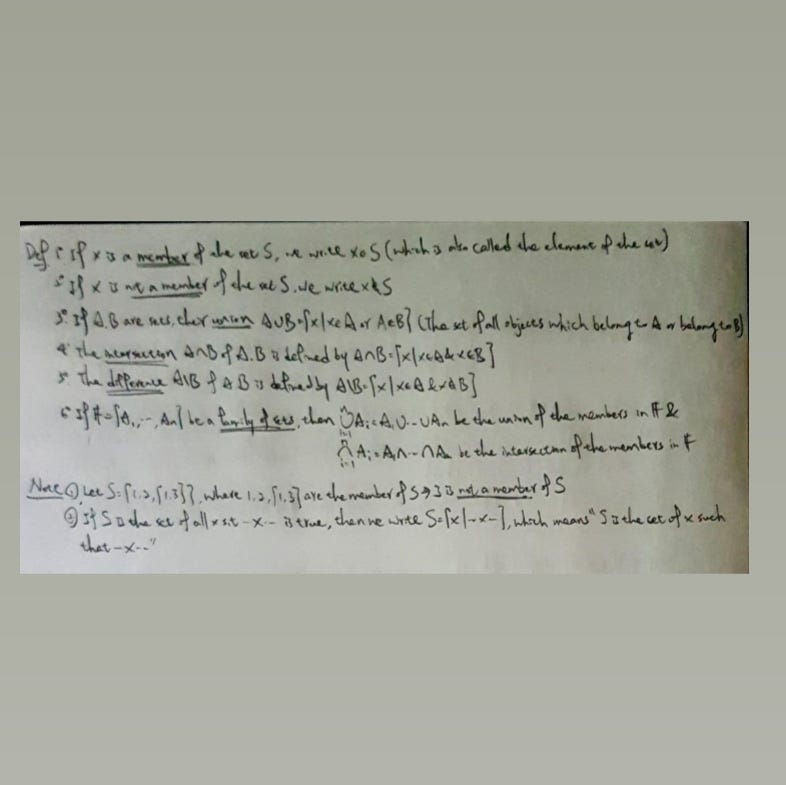 Def 1° If x is a member of the set S, we write x∈S (which is also called the element of the set)
2° If x is not a member of the set S, we write x∉S
3° If A.B are sets, their union A∪B={x|x∈A or A∈B} (The set of all objects which belong to A or belong to B)
4° The intersection A∩B of A.B is defined by A∩B={x|x∈A&x∈B}
5° The difference A\B of A B is defined by A\B={x|x∈A&x∉B}
6° If F={A₁,--,An} be a family of sets, then ⋃ⁿᵢ₌₁Aᵢ=A₁∪--∪An be the union of the members in F &
⋂ⁿᵢ₌₁Aᵢ=A₁∩--∩An be the intersection of the members in F
Note ① Let S={1,2,{1,3}}, where 1,2,{1,3} are the member of S → 3 is not a member of S
② If S is the set of all x s.t --x-- is true, then we write S={x|--x--}, which means "S is the set of x such
that --x--"